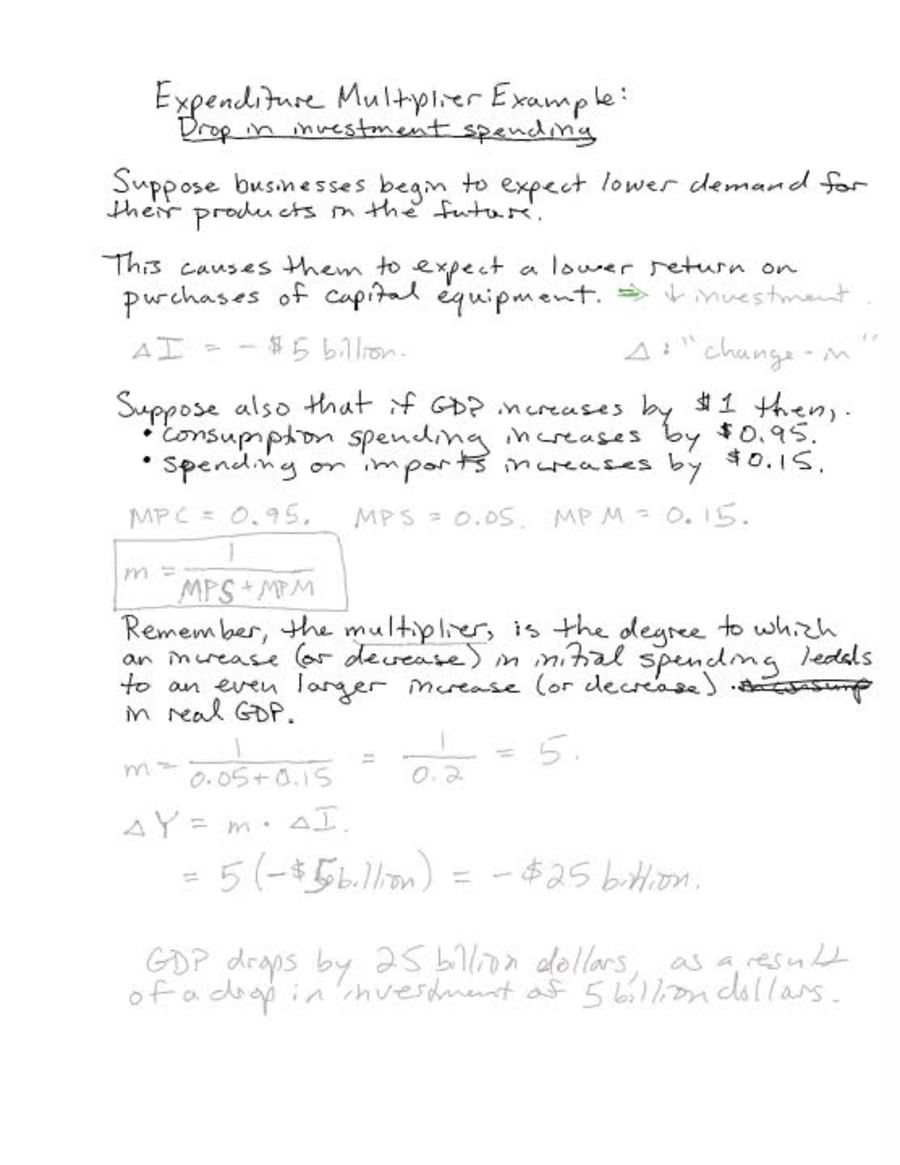 Expenditure Multiplier Example:
Drop in investment spending
Suppose businesses begin to expect lower demand for
their products in the future.
This causes them to expect a lower return on
purchases of capital equipment. ⇒ ↓ investment.
ΔI = - $5 billion. Δ: "change-in"
Suppose also that if GDP increases by $1 then,.
• consumption spending increases by $0.95.
• spending on imports increases by $0.15.
MPC = 0.95. MPS = 0.05. MPM = 0.15.
m = 1 / (MPS + MPM)
Remember, the multiplier, is the degree to which
an increase (or decrease) in initial spending leads
to an even larger increase (or decrease)
in real GDP.
m = 1 / (0.05 + 0.15) = 1 / 0.2 = 5.
ΔY = m · ΔI.
= 5 (-$5 billion) = -$25 billion.
GDP drops by 25 billion dollars, as a result
of a drop in investment of 5 billion dollars.